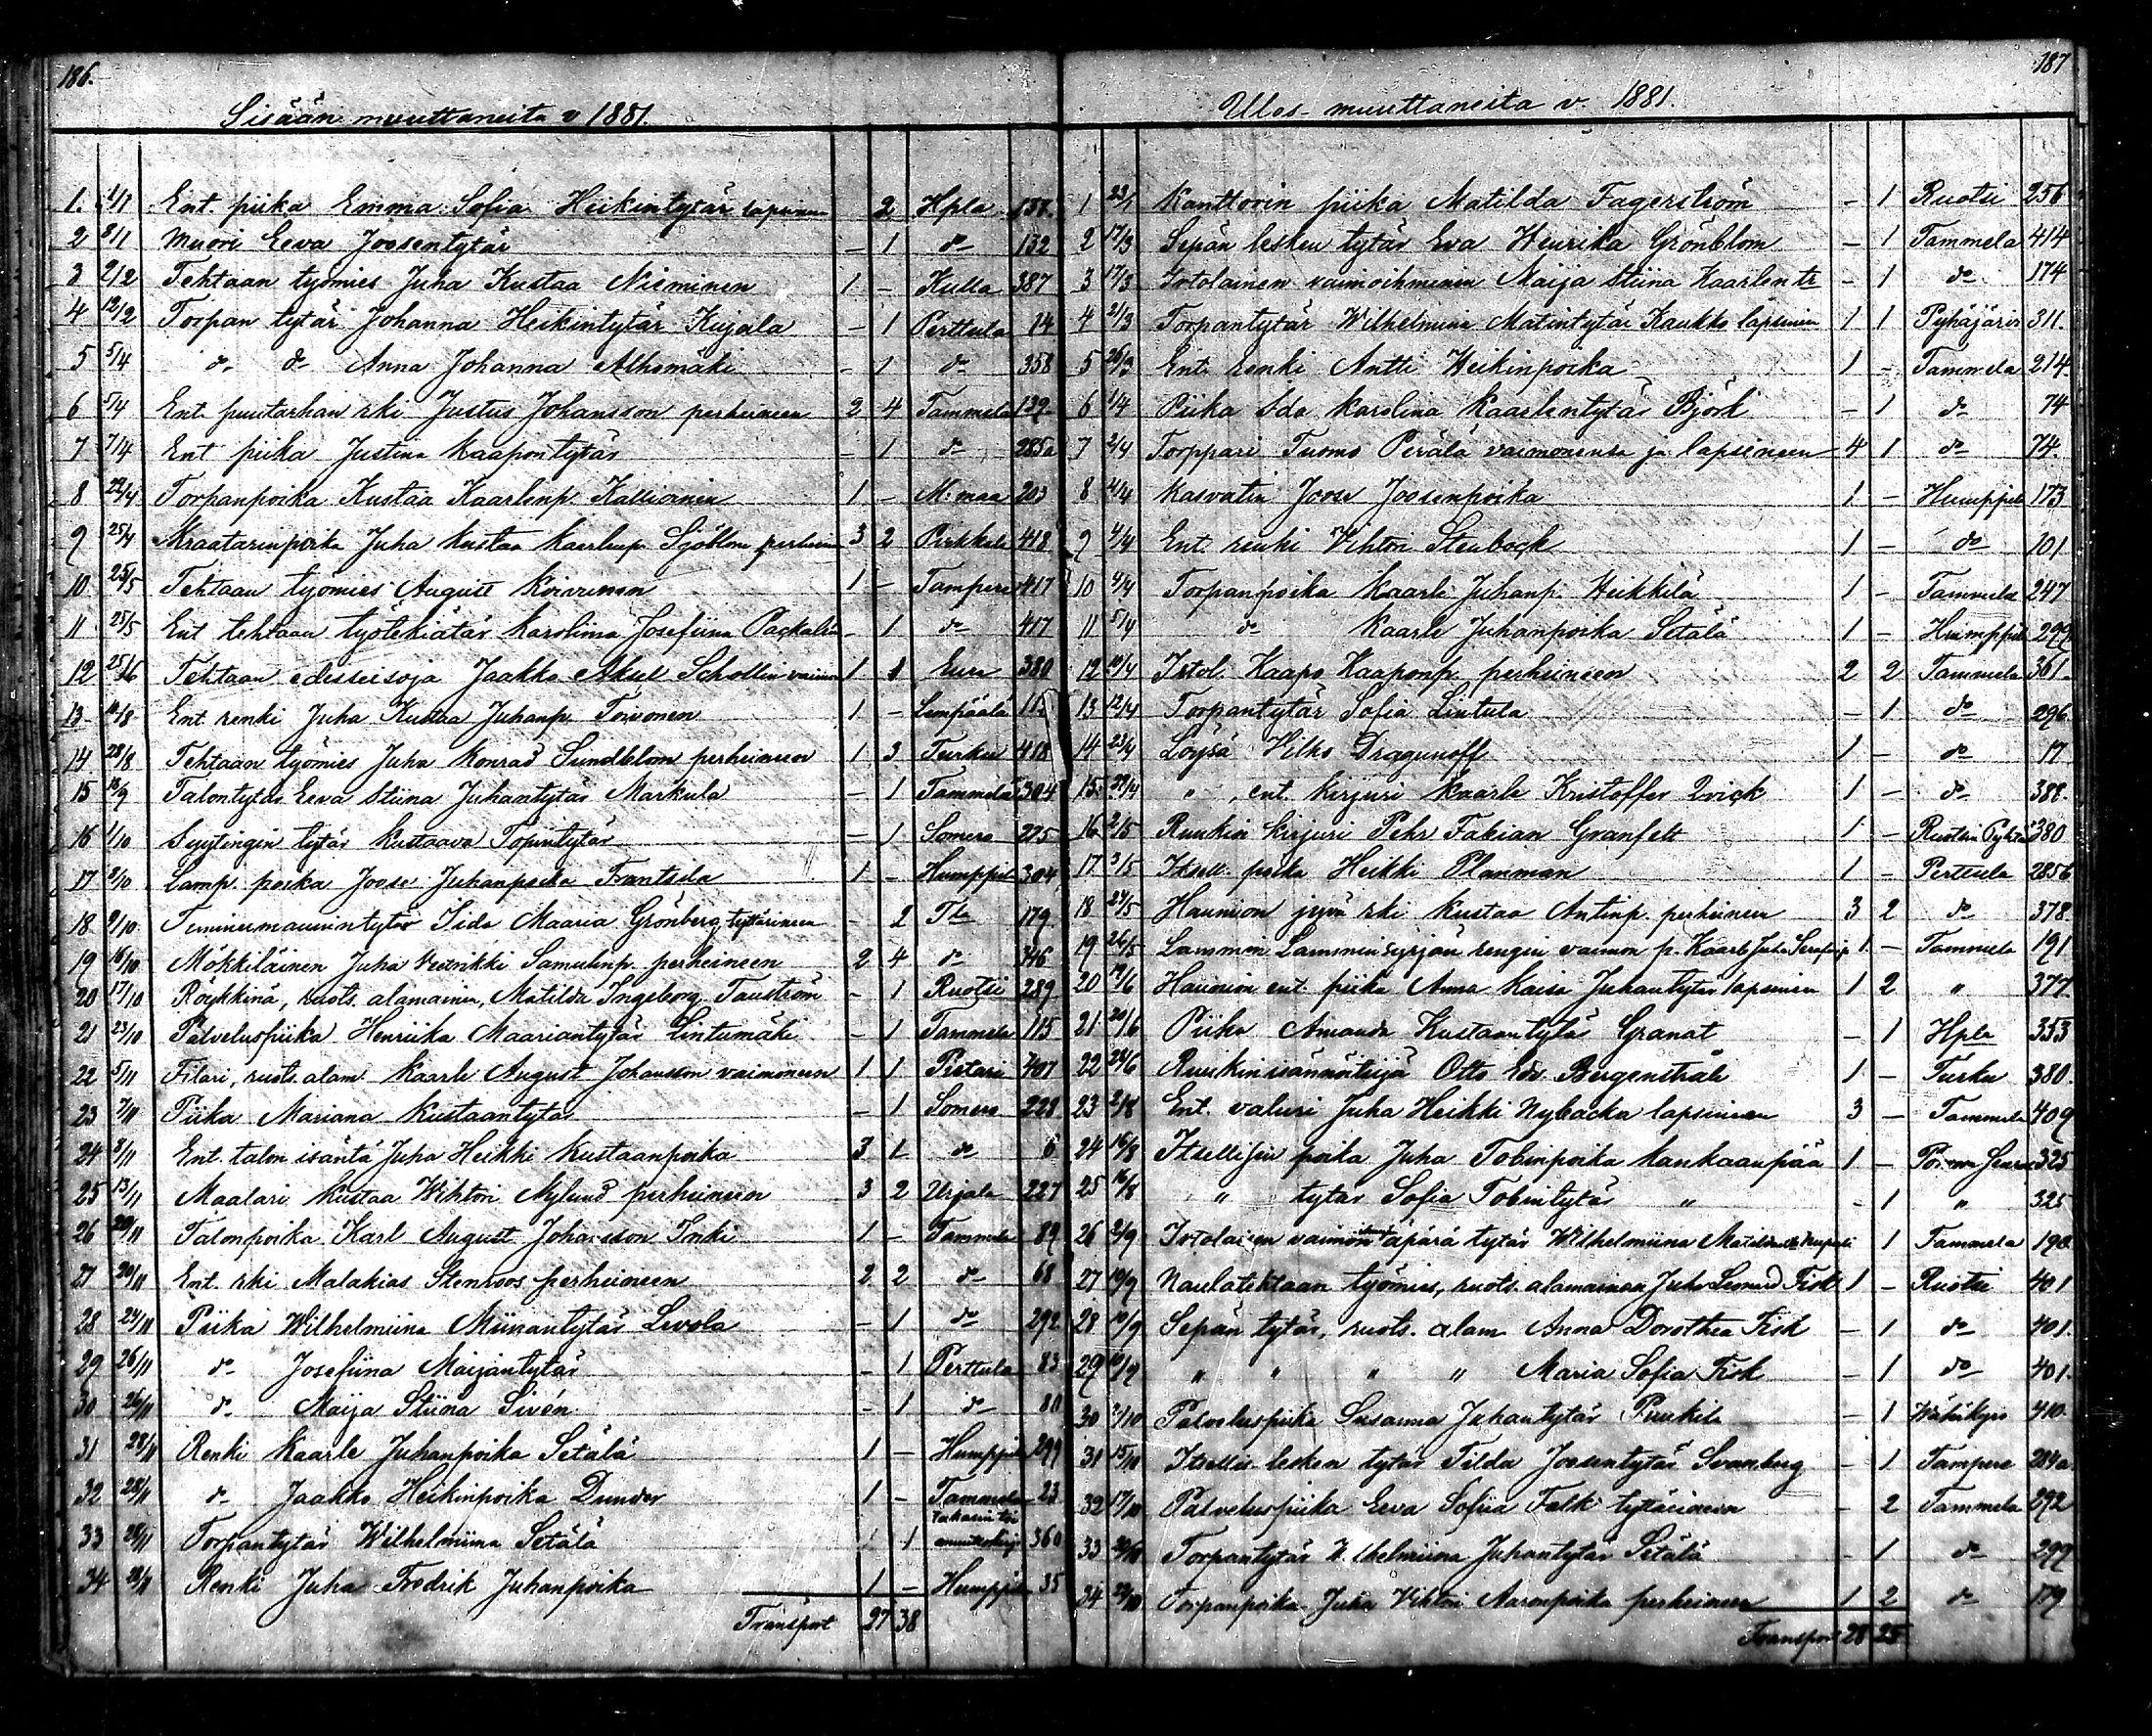 186.
Sisään muuttaneita v 1881.
1. 1/1 Ent. piika Emma Sofia Heikintytär lapsineen 2 Hpla
2 8/1 Muori Eeva Joosentytär – 1 do 132
3 2/2 Tehtaan työmies Juha Kustaa Nieminen 1 – Kulla 387
4 12/2 Torpan tytär Johanna Heikintytär Kujala – 1 Perttula 14
5 5/4 do do Anna Johanna Alhomäki – 1 do 358
6 5/4 Ent. puutarhan rki Justus Johansson perheineen 2 4 Tammela 139
7 7/4 Ent piika Justina Kaapontytär – 1 do 285a
8 22/4 Torpanpoika Kustaa Kaarlenp. Kallioinen 1 – M:maa 203
9 25/4 Kraatarinpoika Juha Kustaa Kaarlenp Sjöblom perhein 3 2 Pirkkala 418
10 25/5 Tehtaan työmies August Koivunen 1 – Tampere 417
11 25/5 Ent tehtaan työtekiätär Karolina Josefiina Packalén – 1 do 417
12 25/6 Tehtaan edesseisoja Jaakko Aksel Schollin vaimo 1 1 Eura 380
13 Ent. renki Juha Kustaa Juhanp. Toivonen 1 – Lempäälä
14 28/8 Tehtaan työmies Juha Konrad Sundblom perheineen 1 3 Turku 418
15 18/9 Talontytär Eeva Stiina Juhantytär Markula – 1 Tammela 304
16 1/10 Syytingin tytär Kustaava Topintytär – 1 Somero 225
17 8/10 Lamp. poika Joose Juhanpoika Frantsila 1 – Humppila 304
18 9/10 Timmermannintytär Iida Maaria Grönberg tyttärineen – 2 Tla 179
19 16/10 Mökkiläinen Juha Vedrikki Samulinp. perheineen 2 4 do 346
20 17/10 Röökkinä, ruots. alamainen, Matilda Ingeborg Tauström – 1 Ruotsi 289
21 23/10 Palveluspiika Henriika Maariantytär Lintumäki – 1 Tammela 115
22 5/11 Filari, ruots. alam. Kaarle August Johansson vaimoneen 1 1 Pietari 407
23 7/11 Piika Mariana Kustaantytär – 1 Somero 228
24 8/11 Ent. talon isäntä Juha Heikki Kustaanpoika 3 1 do 6
25 13/11 Maalari Kustaa Wihtori Nylund perheineen 3 2 Urjala 227
26 20/11 Talonpoika Karl August Johansson Sonki 1 – Tammela 89
27 20/11 Ent. rki Malakias Stenroos perheineen 2 2 do 68
28 24/11 Piika Wilhelmiina Miinantytär Levola – 1 do 292
29 26/11 do Josefiina Maijantytär – 1 Perttula 83
30 26/11 do Maija Stiina Sivén – 1 do 80
31 28/11 Renki Kaarle Juhanpoika Setälä 1 – Humppila 299
32 28/11 do Jaakko Heikinpoika Dunder 1 – Tammela 23
33 28/11 Torpantytär Wilhelmiina Setälä 1 Takasin tuo muuttokirja 360
34 28/11 Renki Juha Fredrik Juhanpoika 1 – Humppila 35
Transport 27 38
187
Ulos-muuttaneita v. 1881.
1 23/1 Kanttorin piika Matilda Fagerström – 1 Ruotsi 256
2 17/3 Sepän lesken tytär Eva Henrika Grönblom – 1 Tammela 414
3 17/3 Irtolainen vaimoihminen Maija Stiina Kaarlen tr – 1 do 174
4 21/3 Torpantytär Wilhelmiina Matintytär Kaukko lapsinen 1 1 Pyhäjärv 311.
5 26/3 Ent. renki Antti Heikinpoika 1 – Tammela 214
6 1/4 Piika Ida Karolina Kaarlentytär Björk – 1 do 74
7 2/4 Torppari Tuomo Perälä vaimonensa ja lapsineen 4 1 do 74.
8 4/4 Kasvatin Joose Joosenpoika 1 – Humppila 173
9 4/4 Ent. renki Vihtori Stenbock 1 – do 101
10 4/4 Torpanpoika Kaarle Juhanp. Heikkilä 1 – Tammela 247
11 5/4 do Kaarle Juhanpoika Setälä 1 – Humppila 299
12 10/4 Itsol. Kaapo Kaaponp. perheineen 2 2 Tammela 361.
13 12/4 Torpantytär Sofia Lintula – 1 do 296
14 23/4 Löysä Vilho Dragunoff 1 – do 17
15. 28/4 " , ent. kirjuri Kaarle Kristoffer Qvick 1 – do 388.
16 2/5 Ruukin kirjuri Pehr Fabian Granfelt 1 – Ruotsin Pyhtää 380
17 3/5 Itsell. poika Heikki Planman 1 – Perttula 285b
18 24/5 Haunion jyvä rki Kustaa Antinp. perheineen 3 2 do 378
19 26/5 Lammin Lamminsyrjän rengin vaimon p. Kaarle Juho Serafinp 1 – Tammela 191
20 19/6 Haunion ent. piika Anna Kaisa Juhantytär lapsineen 1 2 " 377
21 20/6 Piika Amanda Kustaantytär Granat – 1 Hpla 353
22 28/6 Ruukinisännöitsijä Otto Edv. Bergenstråle 1 – Turku 380.
23 2/8 Ent. valuri Juha Heikki Nybacka lapsineen 3 – Tammela 409
24 16/8 Itsellisen poika Juha Tobinpoika Kankaanpää 1 – 325
25 16/8 " tytär Sofia Tobintytär " – 1 " 325
26 2/9 Irtolaisen vaimon äpärä tytär Wilhelmiina 1 Tammela 190
27 10/9 Naulatehtaan työmies, ruots. alamainen Juho Leonard Fisk 1 – Ruotsi 401
28 10/9 Sepän tytär, ruots. alam. Anna Dorothea Fisk – 1 do 401.
29 10/9 " " " " Maria Sofia Fisk – 1 do 401.
30 Palveluspiika Susanna Juhantytär Puukila – 1 Wähäkyrö 410.
31 15/10 Itsellis lesken tytär Tilda Joosentytär Svanberg – 1 Tampere 284a
32 17/10 Palveluspiika Eeva Sofiia Falk tyttärineen – 2 Tammela 292
33 Torpantytär Wilhelmiina Juhantytär Setälä – 1 do 299
34 Torpanpoika Juha Vihtori Aaronpoika perheineen 1 2 do 179
Transport 28 25